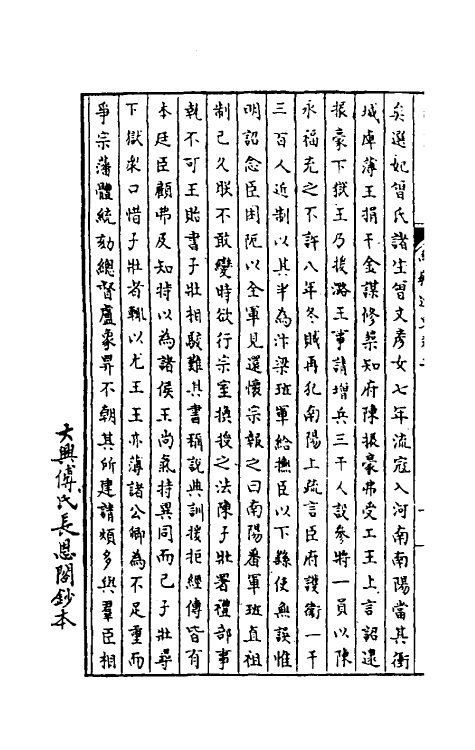 矣選妃曾氏諸生曾文彥女七年流寇入河南南陽當其衝
城庳薄王捐千金謀修築知府陳振豪弗受工王上言詔逮
振豪下獄王乃援潞王事請增兵三千人設參將一員以陳
永福充之不許八年冬賊再犯南陽上疏言臣府護衛一千
三百人近制以其半為汴梁班軍給撫臣以下繇使無誤惟
明詔念臣困阨以全軍見還懷宗報之曰南陽番軍班直祖
制已久朕不敢變時欲行宗室換授之法陳子壯署禮部事
執不可王貽書子壯相駁難其書稱說典訓援拒經傳皆有
本廷臣顧弗及知特以為諸侯王尚氣持異同而已子壯尋
下獄衆口惜子壯者輒以尤王王亦薄諸公卿為不足重而
爭宗藩體統劾總督盧象昇不朝其所建請煩多與羣臣相
大興傅氏長恩閣鈔本